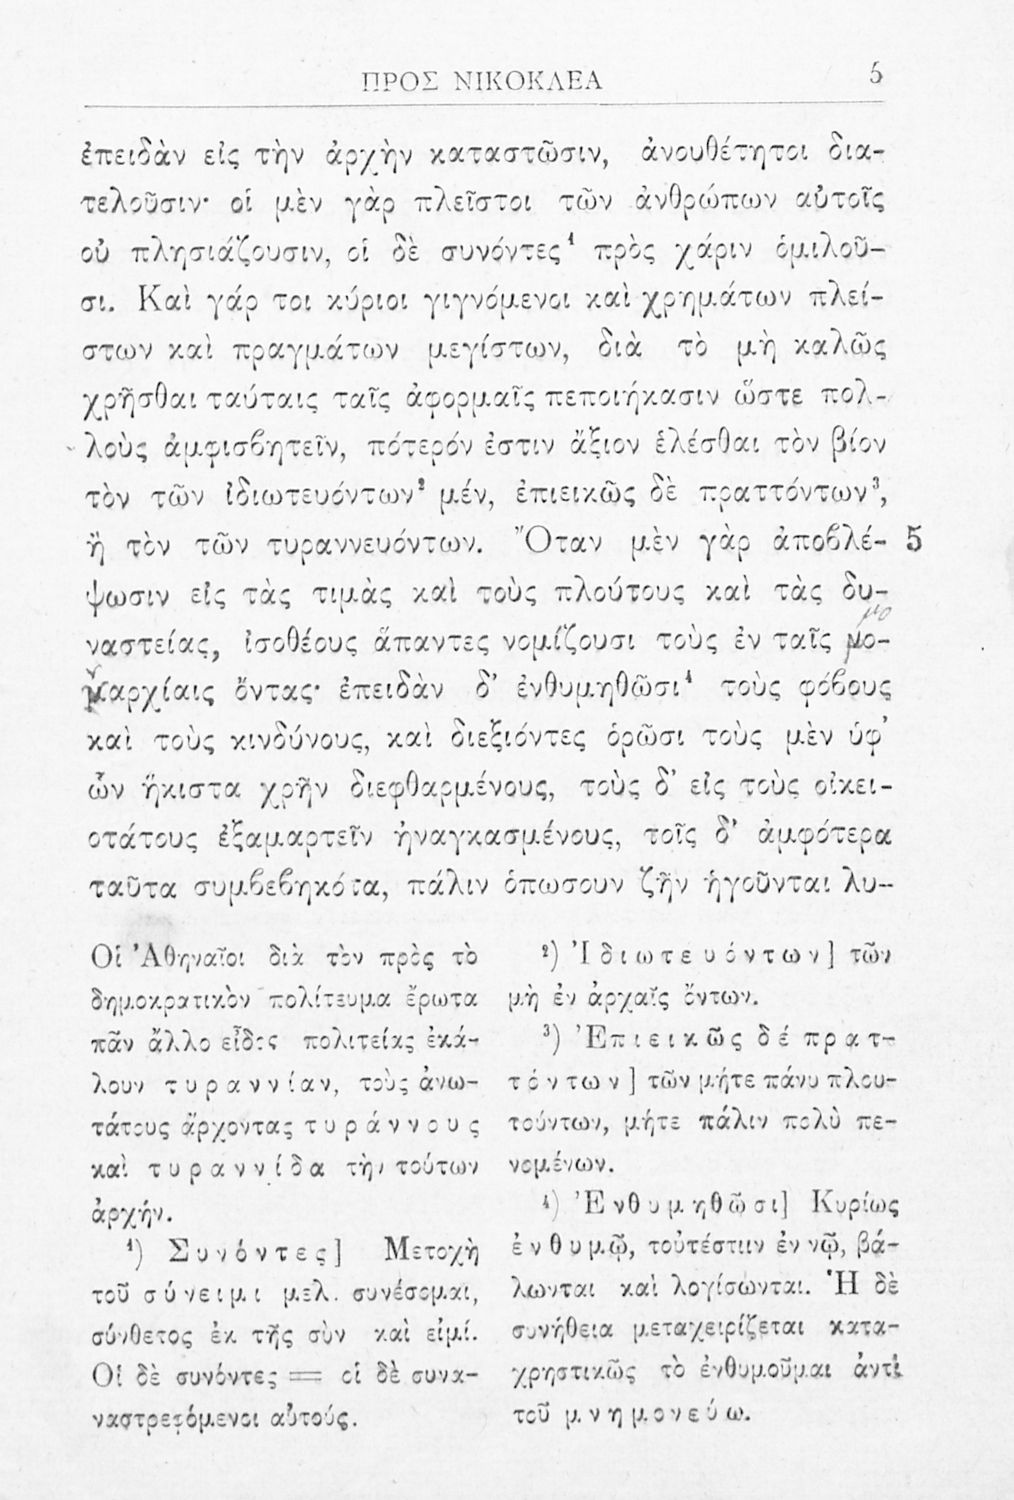 ΠΡΟΣ ΝΙΚΟΚΛΕΑ 5
ἐπειδὰν εἰς τὴν ἀρχὴν καταστῶσιν, ἀνουθέτητοι δια-
τελοῦσιν· οἱ μὲν γὰρ πλεῖστοι τῶν ἀνθρώπων αὐτοῖς
οὐ πλησιάζουσιν, οἱ δὲ συνόντες¹ πρὸς χάριν ὁμιλοῦ-
σι. Καὶ γάρ τοι κύριοι γιγνόμενοι καὶ χρημάτων πλεί-
στων καὶ πραγμάτων μεγίστων, διὰ τὸ μὴ καλῶς
χρῆσθαι ταύταις ταῖς ἀφορμαῖς πεποιήκασιν ὥστε πολ-
λοὺς ἀμφισϐητεῖν, πότερόν ἐστιν ἄξιον ἑλέσθαι τὸν βίον
τὸν τῶν ἰδιωτευόντων² μέν, ἐπιεικῶς δὲ πραττόντων³,
ἢ τὸν τῶν τυραννευόντων. Ὅταν μὲν γὰρ ἀποϐλέ- 5
ψωσιν εἰς τὰς τιμὰς καὶ τοὺς πλούτους καὶ τὰς δυ-
ναστείας, ἰσοθέους ἅπαντες νομίζουσι τοὺς ἐν ταῖς μο-
μο
ναρχίαις ὄντας· ἐπειδὰν δ’ ἐνθυμηθῶσι⁴ τοὺς φόϐους
καὶ τοὺς κινδύνους, καὶ διεξιόντες ὁρῶσι τοὺς μὲν ὑφ’
ὧν ἥκιστα χρῆν διεφθαρμένους, τοὺς δ’ εἰς τοὺς οἰκει-
οτάτους ἐξαμαρτεῖν ἠναγκασμένους, τοῖς δ’ ἀμφότερα
ταῦτα συμϐεϐηκότα, πάλιν ὁπωσουν ζῆν ἡγοῦνται λυ-
Οἱ Ἀθηναῖοι διὰ τὸν πρὸς τὸ
δημοκρατικὸν πολίτευμα ἔρωτα
πᾶν ἄλλο εἶδος πολιτείας ἐκά-
λουν τυραννίαν, τοὺς ἀνω-
τάτους ἄρχοντας τυράννους
καὶ τυραννίδα τὴν τούτων
ἀρχήν.
¹) Συνόντες] Μετοχὴ
τοῦ σύνειμι μελ. συνέσομαι,
σύνθετος ἐκ τῆς σὺν καὶ εἰμί.
Οἱ δὲ συνόντες = οἱ δὲ συνα-
ναστρεφόμενοι αὐτούς.
²) Ἰδιωτευόντων] τῶν
μὴ ἐν ἀρχαῖς ὄντων.
³) Ἐπιεικῶς δέ πρατ-
τόντων] τῶν μήτε πάνυ πλου-
τούντων, μήτε πάλιν πολὺ πε-
νομένων.
⁴) Ἐνθυμηθῶσι] Κυρίως
ἐνθυμῷ, τοὐτέστιιν ἐν νῷ, βά-
λωνται καὶ λογίσωνται. Ἡ δὲ
συνήθεια μεταχειρίζεται κατα-
χρηστικῶς τὸ ἐνθυμοῦμαι ἀντὶ
τοῦ μνημονεύω.